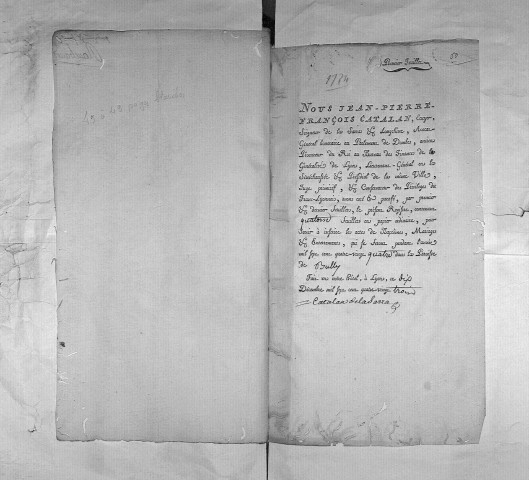 Premier feuillet
1784
NOUS JEAN-PIERRE-
FRANÇOIS CATALAN, Ecuyer,
Seigneur de la Sarra & Longchene, Avocat-
Général honoraire au Parlement de Dombes, ancien
Procureur du Roi au Bureau des Finances de la
Généralité de Lyon, Lieutenant-Général en la
Sénéchaussée & Présidial de la même Ville,
Juge primitif, & Conservateur des Privileges du
Franc-Lyonnois, avons coté & paraphé, par premier
& dernier feuillets, le présent Registre, contenant
quatorze feuillets en papier ordinaire, pour
servir à inscrire les actes de Baptêmes, Mariages
& Enterremens, qui se feront pendant l'année
mil sept cent quatre-vingt quatre dans la Paroisse
de Bully
Fait en notre Hôtel, à Lyon, ce dix
Décembre mil sept cent quatre-vingt trois
Catalan de la Sarra